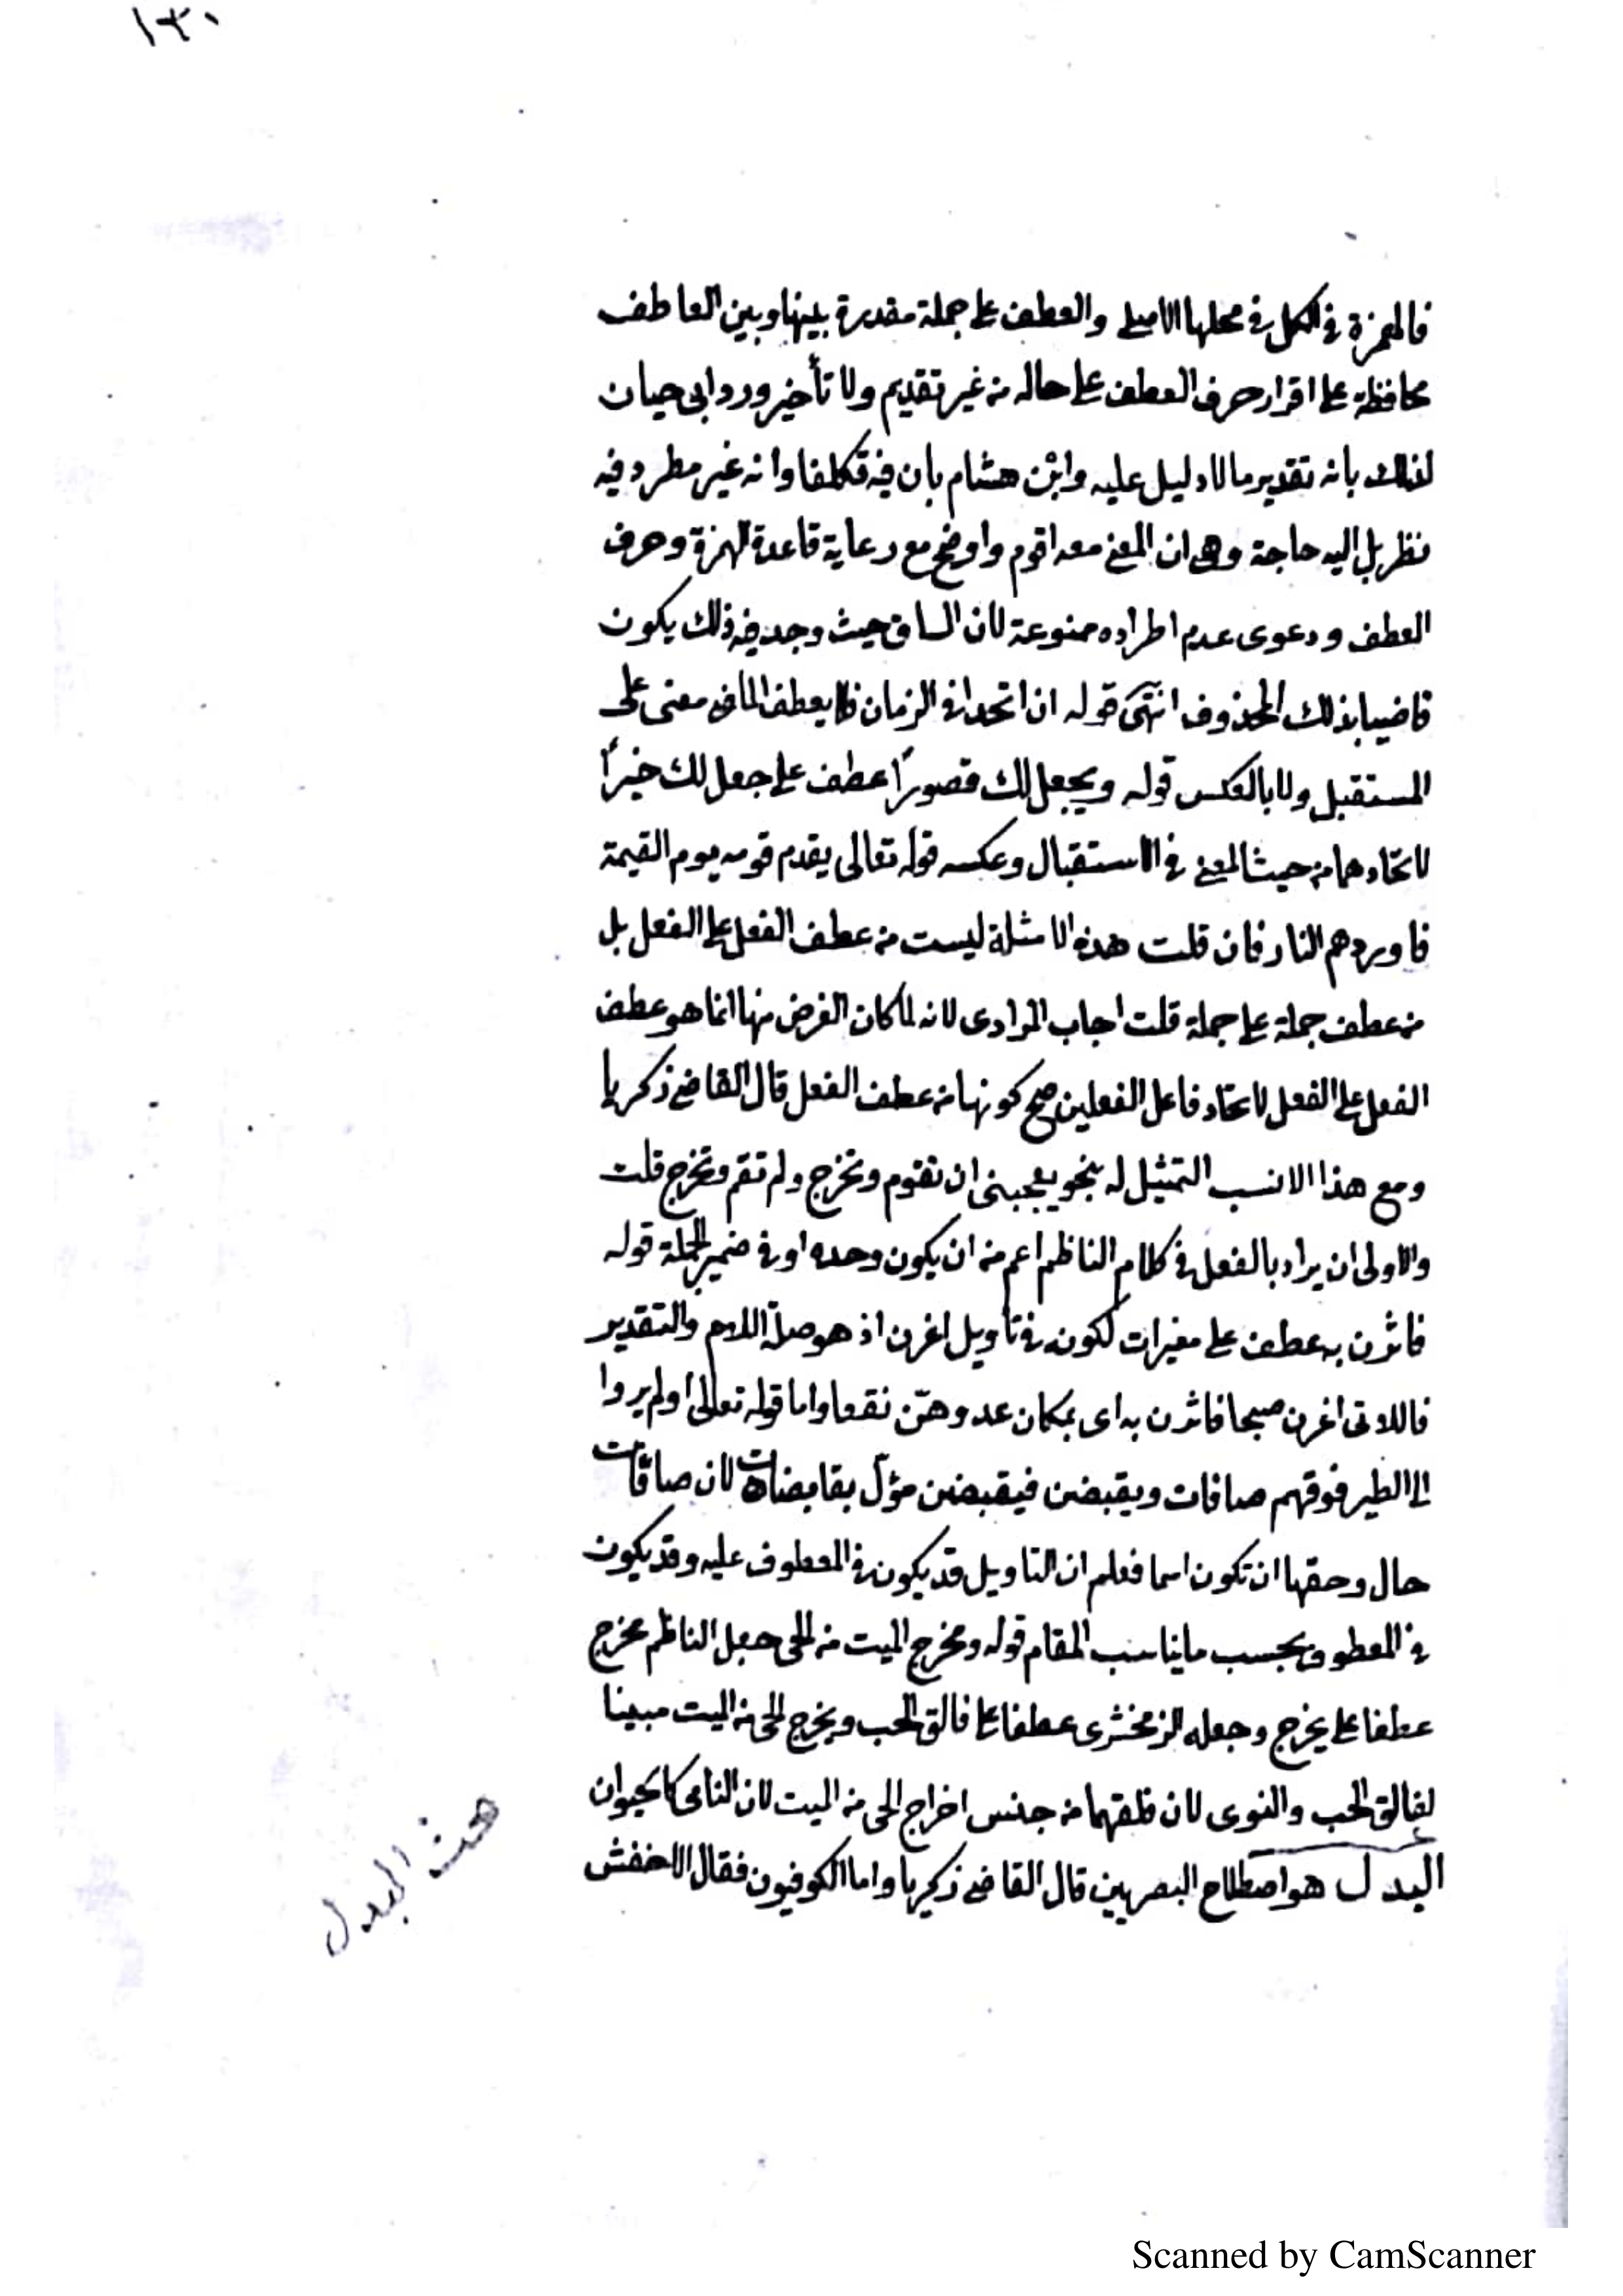 ١٣٠
فالهمزة في الكل في محلها الاصلي والعطف على جملة مقدرة بينها وبين العاطف
محافظة على اقرار حرف العطف على حاله من غير تقديم ولا تأخير ورد ابى حيان
لذلك بانه تقدير مالا دليل عليه وابْن هشام بان فيه تكلفا وانه غير مطرد فيه
نظر بل اليه حاجة وهى ان المعنى معه اقوم واوضح مع رعاية قاعدة الهمزة وحرف
العطف ودعوى عدم اطراده ممنوعة لان السياق حيث وجد فيه ذلك يكون
قاضيا بذلك المحذوف انتهى قوله ان اتحدا في الزمان فلا يعطف الماضي معنى على
المستقبل ولا بالعكس قوله ويجعل لك قصوراً عطف على جعل لك خيراً
لاتحادهما من حيث المعنى في الاستقبال وعكسه قوله تعالى يقدم قومه يوم القيمة
فاوردهم النار فان قلت هذه الامثلة ليست من عطف الفعل على الفعل بل
من عطف جملة على جملة قلت اجاب المرادى لانه لما كان الغرض منها انما هو عطف
الفعل على الفعل لاتحاد فاعل الفعلين صح كونها من عطف الفعل قال القاضي زكريا
ومع هذا الانسب التمثيل له بنحو يعجبنى ان تقوم وتخرج ولم تقم وتخرج قلت
والاولى ان يراد بالفعل في كلام الناظم اعم من ان يكون وحده او في ضمير الجملة قوله
فاثرن به عطف على مغيرات لكونه في تأويل اغرن اذ هو صلة اللام والتقدير
فاللاتى اغرن صبحا فاثرن به اى بمكان عدوهنّ نقعا واما قوله تعالى اولم يروا
الى الطير فوقهم صافات ويقبضن فيقبضن مؤل بقابضات لان صافّات
حال وحقها ان تكون اسما فعلم ان التاويل قد يكون في المعطوف عليه وقد يكون
في المعطوف بحسب ما يناسب المقام قوله ومخرج الميت من الحى جعل الناظم مخرج
عطفا على يخرج وجعله الزمخشرى عطفا على فالق الحب ويخرج الحى من الميت مبينا
لفالق الحب والنوى لان فلقهما من جنس اخراج الحى من الميت لان النامى كالحيوان
البدل هو اصطلاح البصريين قال القاضي زكريا واما الكوفيون فقال الاخفش
البدل
Scanned by CamScanner